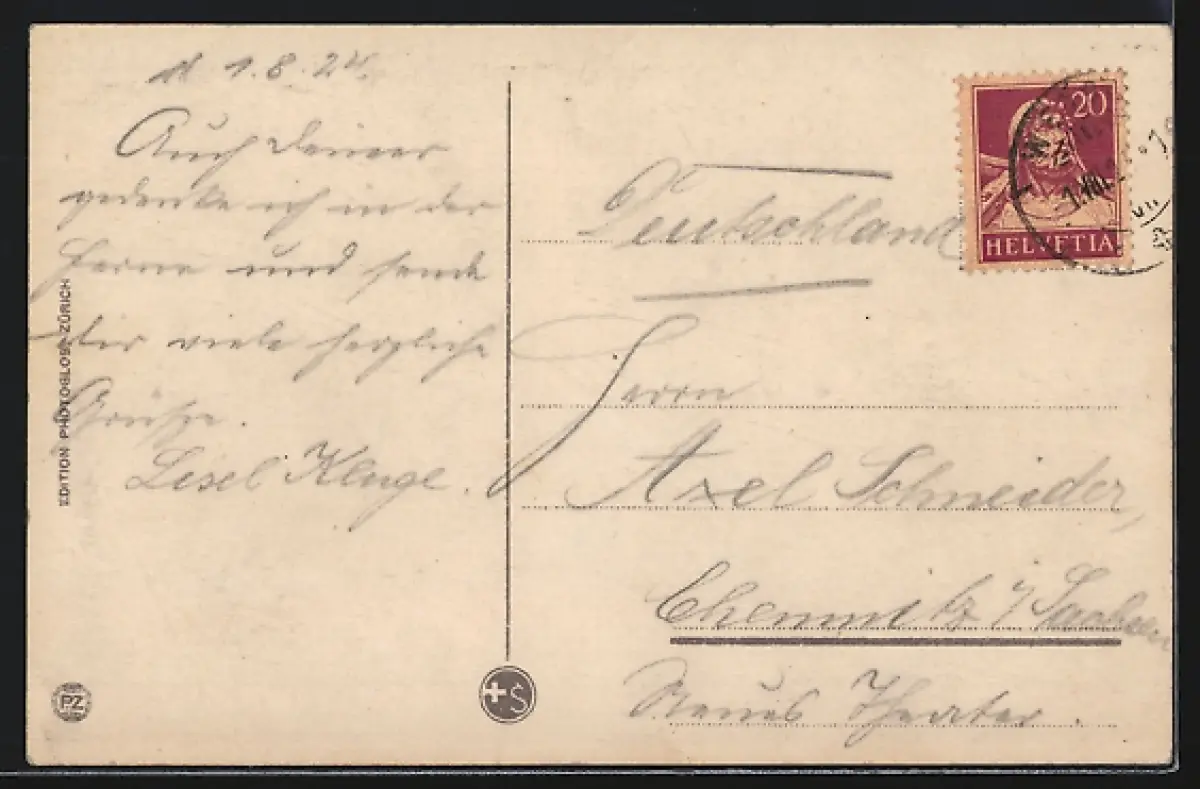 d 1.8.24.
Auch Deiner
gedenke ich in der
Ferne und sende
dir viele herzliche
Grüße.
Lisel Kluge.
EDITION PHOTOGLOB ZÜRICH
PZ
S
20
HELVETIA
Deutschland
Herrn
Axel Schneider,
Chemnitz i/Sachsen
Neues Theater.